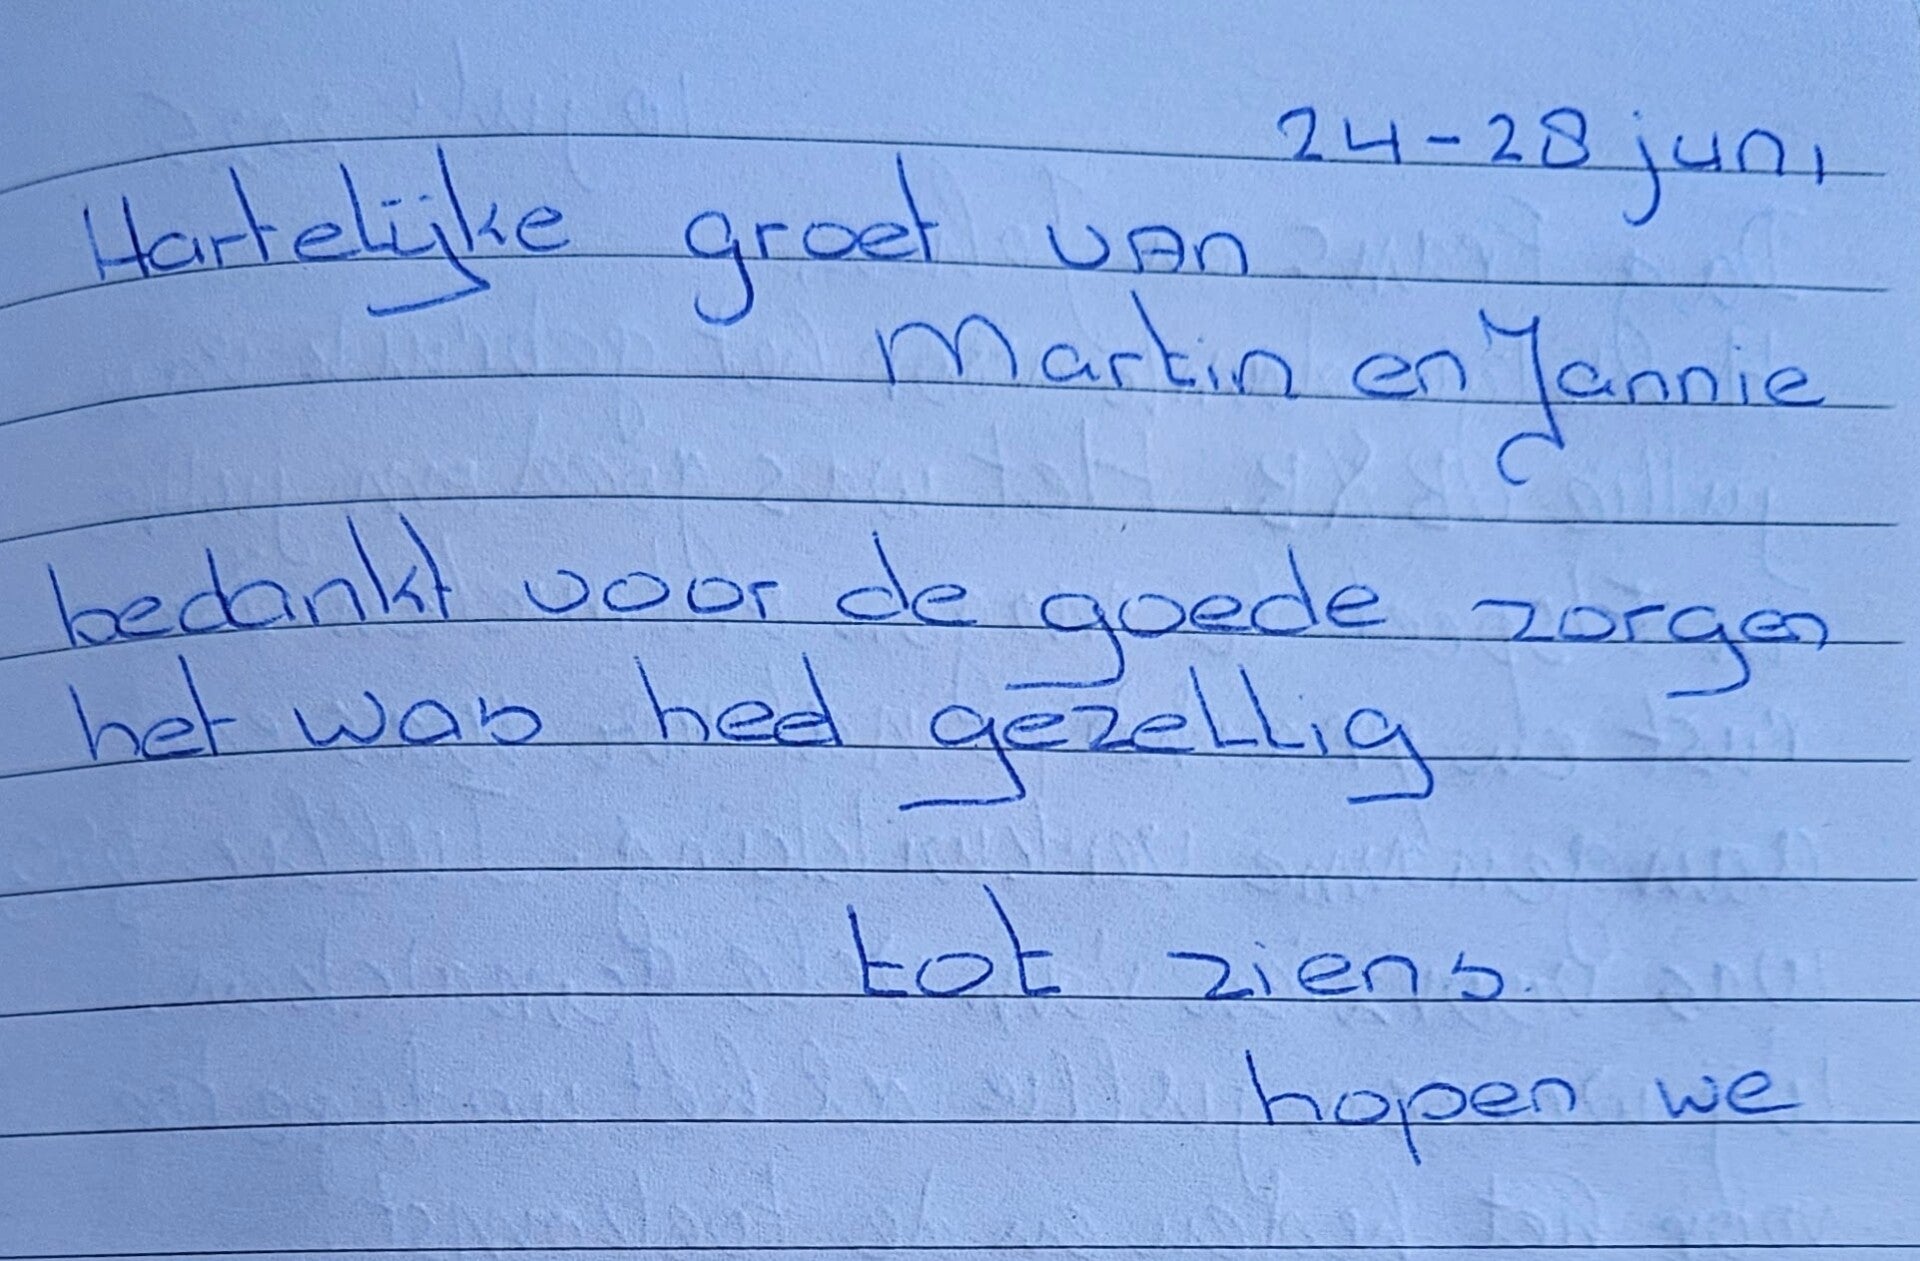 24-28 juni
Hartelijke groet van
Martin en Jannie
bedankt voor de goede zorgen
het was heel gezellig
tot ziens.
hopen we